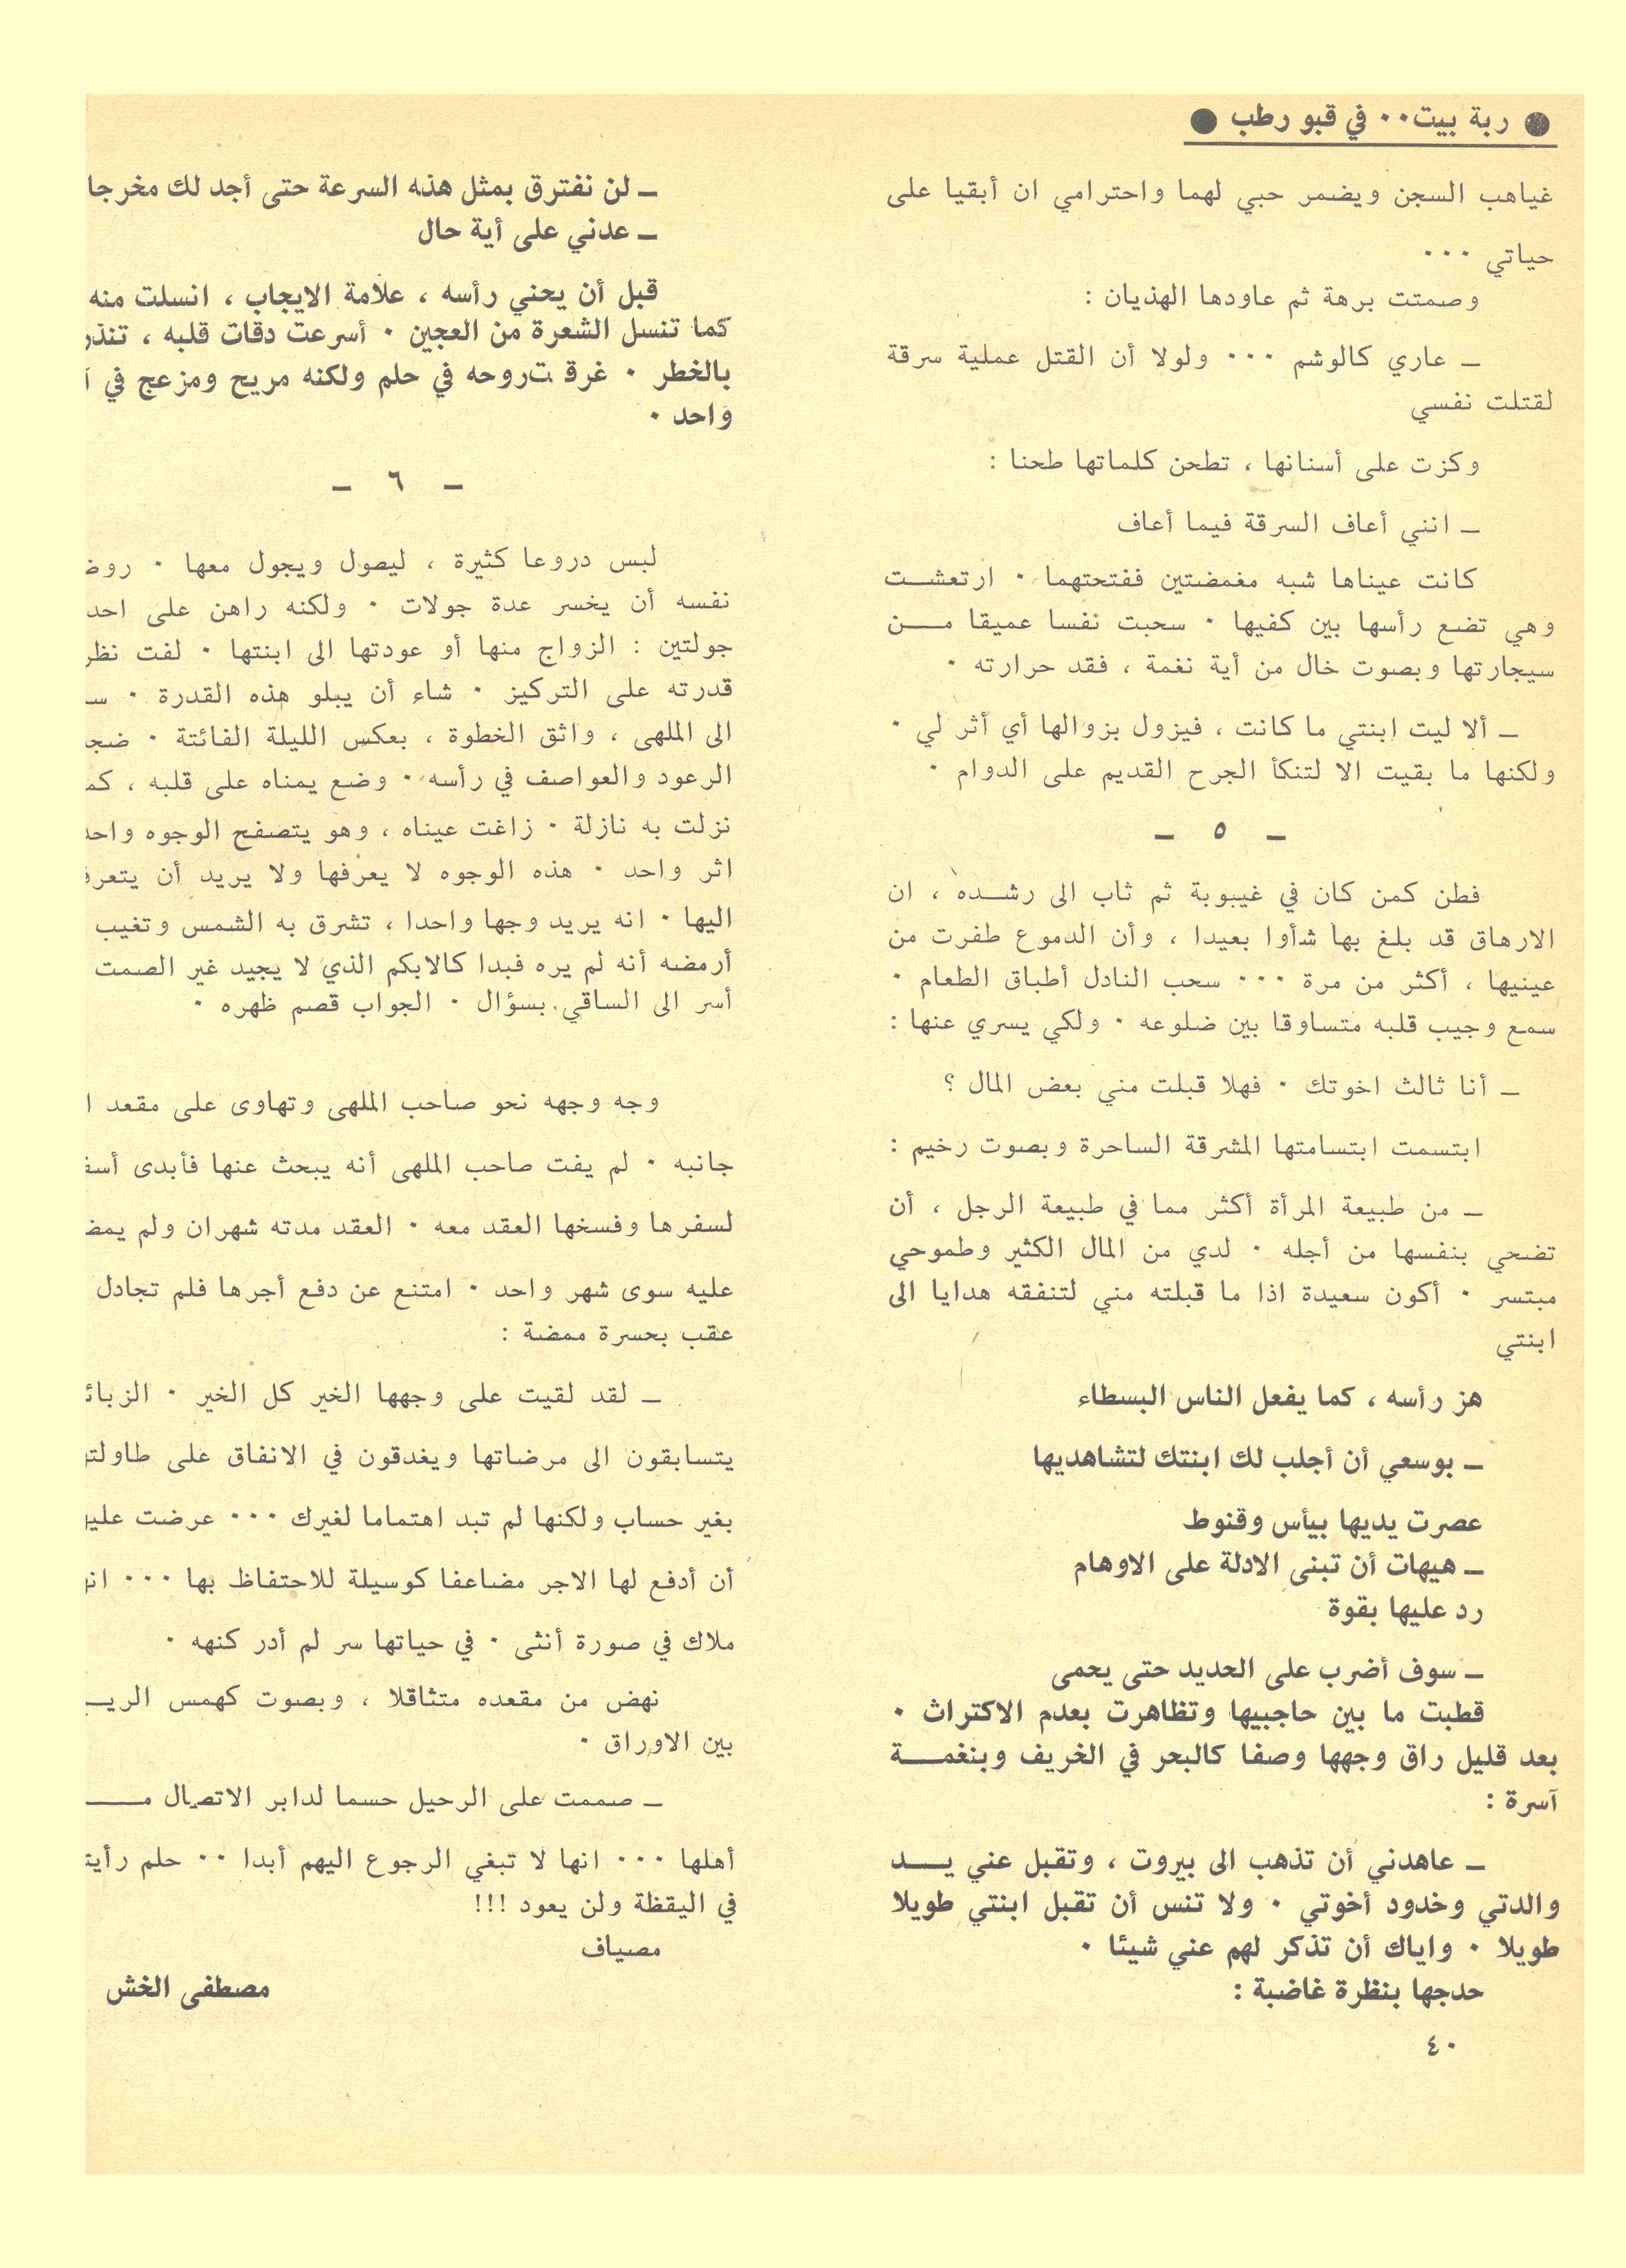 ● ربة بيت٠٠ في قبو رطب ●
غياهب السجن ويضمر حبي لهما واحترامي ان أبقيا على
حياتي ٠٠٠
وصمتت برهة ثم عاودها الهذيان :
ـ عاري كالوشم ٠٠٠ ولولا أن القتل عملية سرقة
لقتلت نفسي
وكزت على أسنانها ، تطحن كلماتها طحنا :
ـ انني أعاف السرقة فيما أعاف
كانت عيناها شبه مغمضتين ففتحتهما ٠ ارتعشـــت
وهي تضع رأسها بين كفيها ٠ سحبت نفسا عميقا مــــن
سيجارتها وبصوت خال من أية نغمة ، فقد حرارته ٠
ـ ألا ليت ابنتي ما كانت ، فيزول بزوالها أي أثر لي ٠
ولكنها ما بقيت الا لتنكأ الجرح القديم على الدوام ٠
ـ ٥ ـ
فطن كمن كان في غيبوبة ثم ثاب الى رشـــده ، ان
الارهاق قد بلغ بها شأوا بعيدا ، وأن الدموع طفرت من
عينيها ، أكثر من مرة ٠٠٠ سحب النادل أطباق الطعام ٠
سمع وجيب قلبه متساوقا بين ضلوعه ٠ ولكي يسري عنها :
ـ أنا ثالث اخوتك ٠ فهلا قبلت مني بعض المال ؟
ابتسمت ابتسامتها المشرقة الساحرة وبصوت رخيم :
ـ من طبيعة المرأة أكثر مما في طبيعة الرجل ، أن
تضحي بنفسها من أجله ٠ لدي من المال الكثير وطموحي
مبتسر ٠ أكون سعيدة اذا ما قبلته مني لتنفقه هدايا الى
ابنتي
هز رأسه ، كما يفعل الناس البسطاء
ـ بوسعي أن أجلب لك ابنتك لتشاهديها
عصرت يديها بيأس وقنوط
ـ هيهات أن تبنى الادلة على الاوهام
رد عليها بقوة
ـ سوف أضرب على الحديد حتى يحمى
قطبت ما بين حاجبيها وتظاهرت بعدم الاكتراث ٠
بعد قليل راق وجهها وصفا كالبحر في الخريف وبنغمــــة
آسرة :
ـ عاهدني أن تذهب الى بيروت ، وتقبل عني يــــد
والدتي وخدود أخوتي ٠ ولا تنس أن تقبل ابنتي طويلا
طويلا ٠ واياك أن تذكر لهم عني شيئا ٠
حدجها بنظرة غاضبة :
٤٠
ـ لن نفترق بمثل هذه السرعة حتى أجد لك مخرجا
ـ عدني على أية حال
قبل أن يحني رأسه ، علامة الايجاب ، انسلت منه
كما تنسل الشعرة من العجين ٠ أسرعت دقات قلبه ، تنذر
بالخطر ٠ غرق تروحه في حلم ولكنه مريح ومزعج في
واحد ٠
ـ ٦ ـ
لبس دروعا كثيرة ، ليصول ويجول معها ٠
نفسه أن يخسر عدة جولات ٠ ولكنه راهن على احد
جولتين : الزواج منها أو عودتها الى ابنتها ٠ لفت نظر
قدرته على التركيز ٠ شاء أن يبلو هذه القدرة ٠
الى الملهى ، واثق الخطوة ، بعكس الليلة الفائتة ٠
الرعود والعواصف في رأسه ٠ وضع يمناه على قلبه ،
نزلت به نازلة ٠ زاغت عيناه ، وهو يتصفح الوجوه واحد
اثر واحد ٠ هذه الوجوه لا يعرفها ولا يريد أن
اليها ٠ انه يريد وجها واحدا ، تشرق به الشمس وتغيب
أرمضه أنه لم يره فبدا كالابكم الذي لا يجيد غير الصمت
أسر الى الساقي بسؤال ٠ الجواب قصم ظهره ٠
وجه وجهه نحو صاحب الملهى وتهاوى على مقعد
جانبه ٠ لم يفت صاحب الملهى أنه يبحث عنها فأبدى
لسفرها وفسخها العقد معه ٠ العقد مدته شهران ولم
عليه سوى شهر واحد ٠ امتنع عن دفع أجرها فلم تجادل
عقب بحسرة ممضة :
ـ لقد لقيت على وجهها الخير كل الخير ٠
يتسابقون الى مرضاتها ويغدقون في الانفاق على
بغير حساب ولكنها لم تبد اهتماما لغيرك ٠٠٠ عرضت
أن أدفع لها الاجر مضاعفا كوسيلة للاحتفاظ بها ٠٠٠
ملاك في صورة أنثى ٠ في حياتها سر لم أدر كنهه ٠
نهض من مقعده متثاقلا ، وبصوت كهمس
بين الاوراق ٠
ـ صممت على الرحيل حسما لدابر الاتصال
أهلها ٠٠٠ انها لا تبغي الرجوع اليهم أبدا ٠٠ حلم
في اليقظة ولن يعود !!!
مصياف
مصطفى الخش